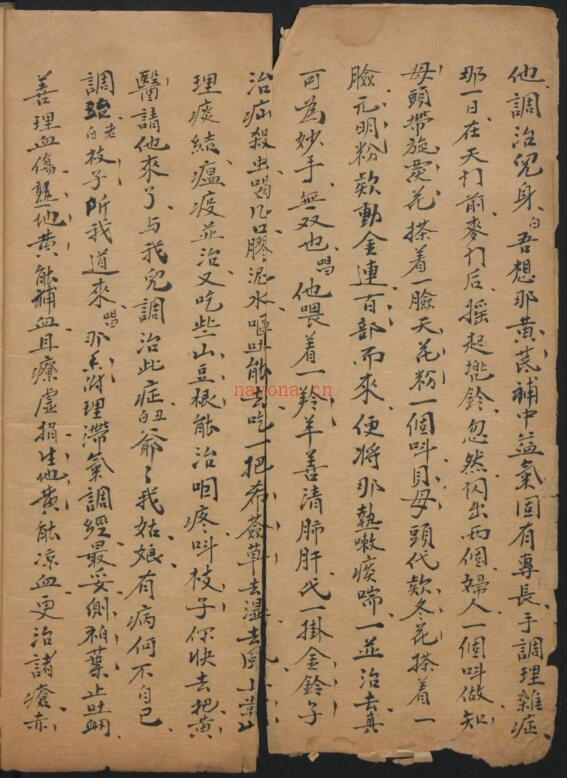 他調治兒身白吾想那黄芪補中益氣固有專長手調理雜症
那一日在天门前麥门后摇起搋鈴忽然闪出兩個婦人一個叫做知
母頭帶旋覆花搽着一臉天花粉一個叫貝母頭代款冬花搽着一
臉元明粉款動金連百部而來便將那热嗽痰喘一並治去真
可為妙手無双也唱他喂着一羚羊善清肺肝代一掛金鈴子
治疝殺虫喝几口膠泥水嘔吐能去吃一把希薟草去湿去風
理痰結瘟疫並治又吃些山豆根能治咽疼叫枝子你快去把黄
醫請他來了与我兒調治此症丑白爺了我姑娘有病何不自己
調治老白枝子听我道來唱那香附理滯氣調經最妥側柏葉止吐衄
善理血傷熟地黄能補血且療虚損生地黄能凉血更治諸瘡赤
nayona.cn